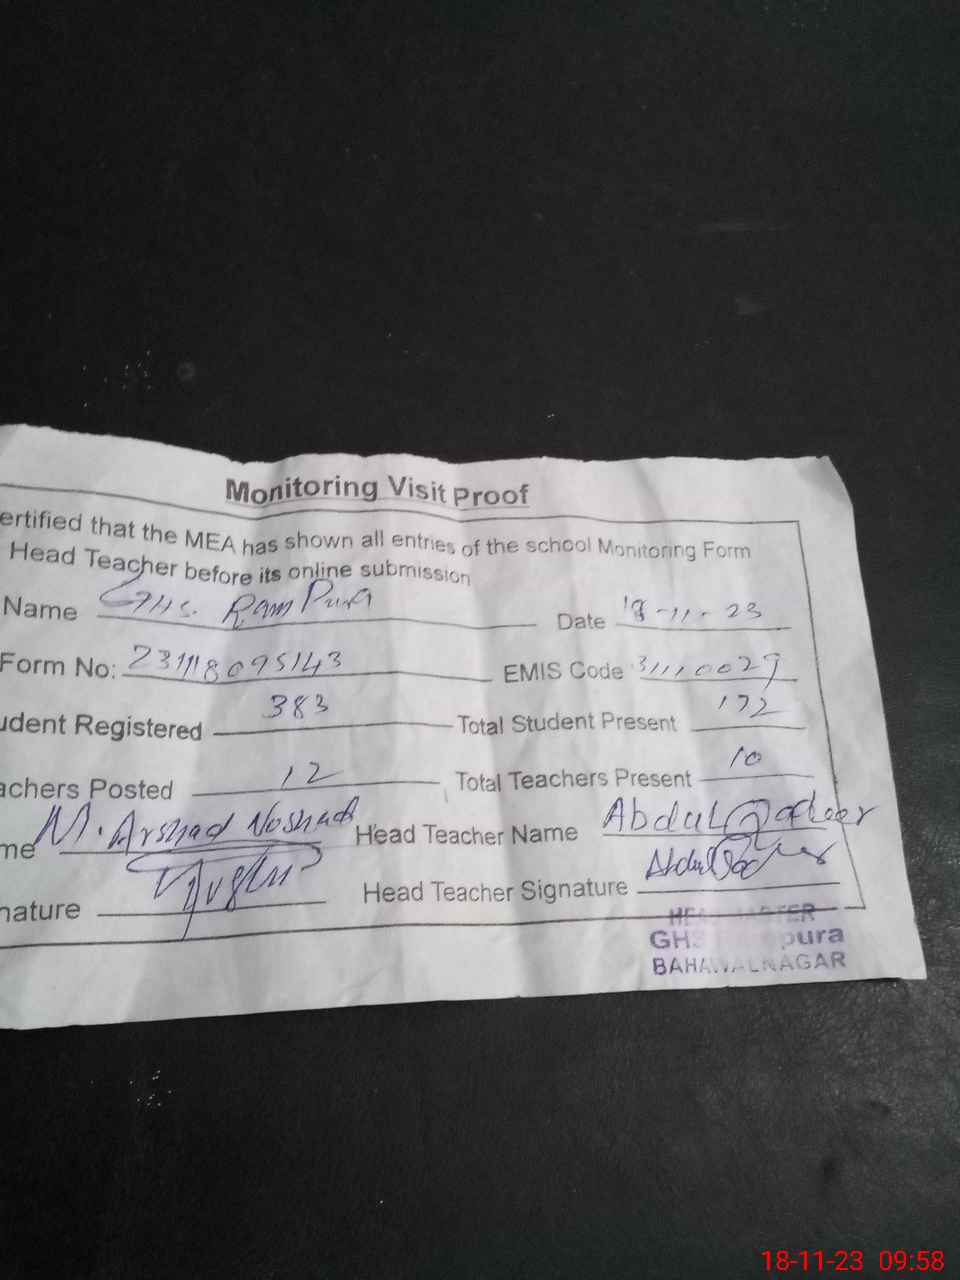 Monitoring Visit Proof
ertified that the MEA has shown all entries of the school Monitoring Form
Head Teacher before its online submission
Name GHS. Ram Pura Date 18-11-23
Form No: 231118095143 EMIS Code 31110029
udent Registered 383 Total Student Present 172
achers Posted 12 Total Teachers Present 10
me M. Arshad Noshad Head Teacher Name Abdul
nature Head Teacher Signature Abdul
HEADMASTER
GHS Rampura
BAHAWALNAGAR
18-11-23 09:58